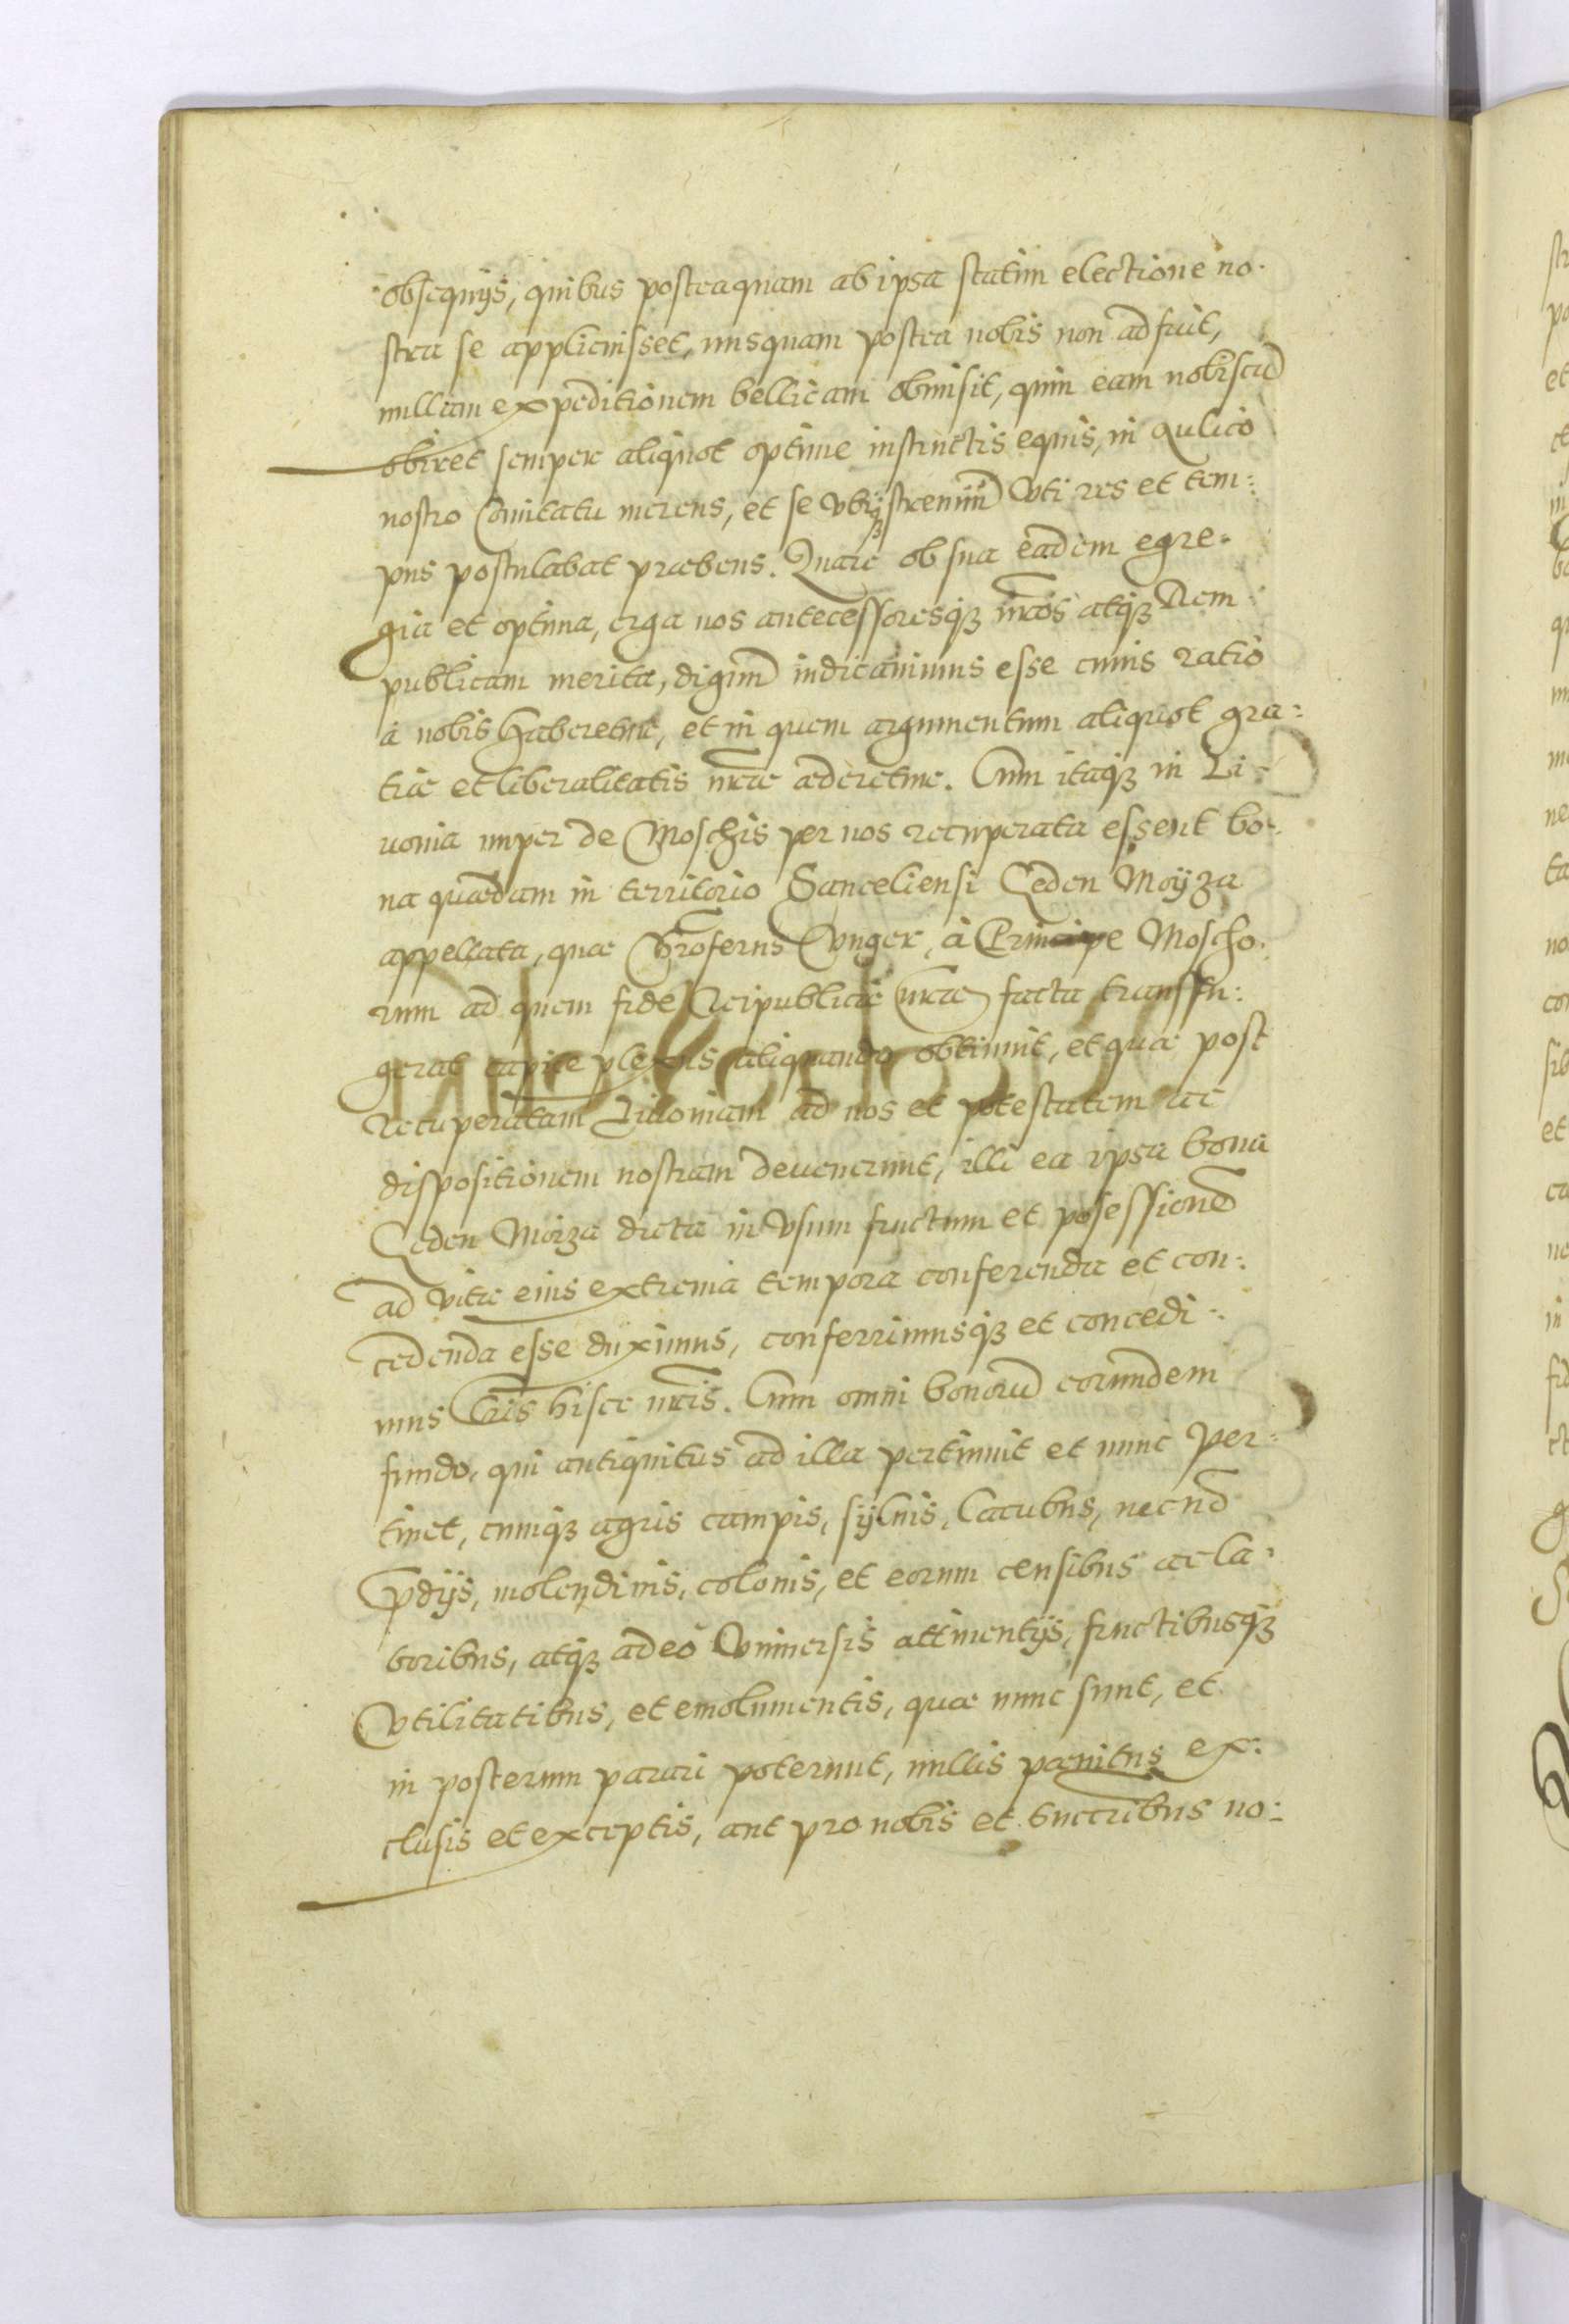 obsequijs, quibus posteaquam ab ipsa statim electione no-
stra se applicuisset, nusquam postea nobis non adfuit,
nullam expeditionem bellicam obmisit, quin eam nobiscũ
obiret semper aliquot optime instructis equis, in Aulico
nostro Comitatu merens, et se vbiq3 strenuũ Vti res et tem-
pus postulabat præbens. Quare ob sua eadem egre-
gia et optima, erga nos antecessoresq3 nr̃os atq3 Rem
publicam merita, dignũ iudicauimus esse cuius ratio
à nobis haberetur, et in quem argumentum aliquot gra-
tiæ et liberalitatis nr̃æ æderetur. Cum itaq3 in Li-
uonia nuper de Moschis per nos recuperata essent bo-
na quædam in territorio Sanceliensi Ceden Moyza
appellata, quæ Vnger, à Principe Moscho-
rum ad quem fide Reipublicæ nr̃æ facta transfu-
gerat capite plexus aliquando obtinuit, et quæ post
recuperatam Liuoniam ad nos et potestatem ac
dispositionem nostram deuenerunt, illi ea ipsa bona
Ceden Moiza dicta in Vsum fructum et posessionẽ
ad vitæ eius extrema tempora conferenda et con-
cedenda esse duximus, conferrimusq3 et concedi-
mus Lr̃is hisce nr̃is. Cum omni bonorũ eorundem
fundo, qui antiquitus ad illa pertinuit et nunc per-
tinet, cumq3 agris campis, syluis, lacubus, necnõ
p̃dijs, molendinis, colonis, et eorum censibus ac la-
boribus, atq3 adeò Vniuersis attinentijs, fructibusq3
Vtilitatibus, et emolumentis, quæ nunc sunt, et
in posterum parari poterunt, nullis pænitus ex-
clusis et exceptis, aut pro nobis et succrĩbus no-